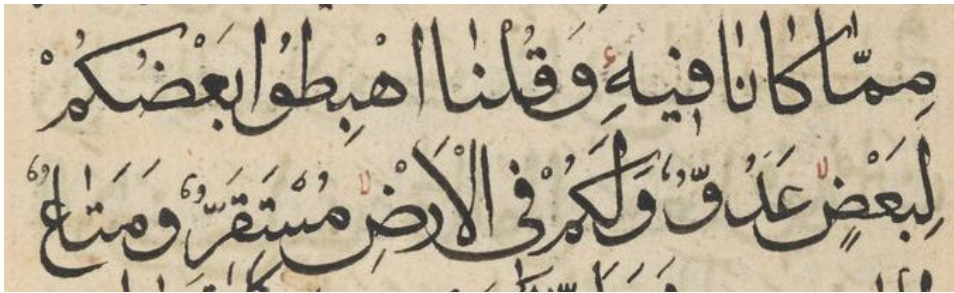 مِمَّا كَانَا فِيهِ وَقُلْنَا اهْبِطُوا بَعْضُكُمْ
لِبَعْضٍ عَدُوٌّ وَلَكُمْ فِى الْاَرْضِ مُسْتَقَرٌّ وَمَتَاعٌ